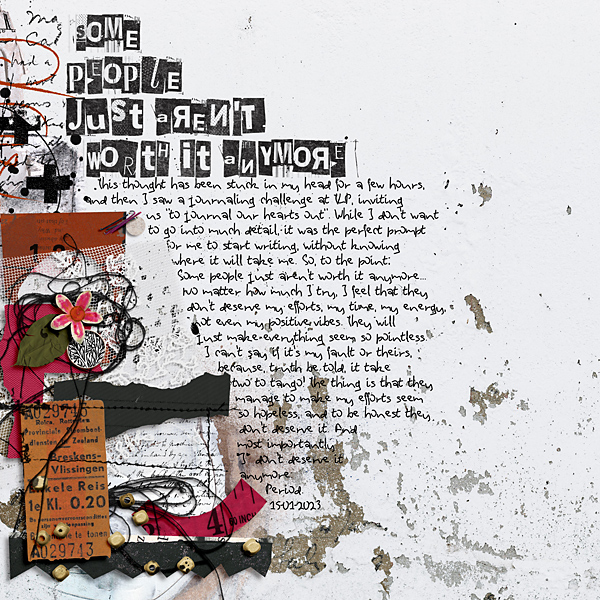 SOME
PEOPLE
Just aREN'T
WORTH it aNYMORE
This thought has been stuck in my head for a few hours,
and then I saw a journaling challenge at VLP, inviting
us "to journal our hearts out". While I don't want
to go into much detail, it was the perfect prompt
for me to start writing, without knowing
where it will take me. So, to the point.
Some people just aren't worth it anymore...
No matter how much I try, I feel that they
don't deserve my efforts, my time, my energy,
not even my positive vibes. They will
just make everything seem so pointless.
I can't say if it's my fault or theirs,
because, truth be told, it take
two to tango! The thing is that they
manage to make my efforts seem
so hopeless, and to be honest they
don't deserve it. And
most importantly
"I" don't deserve it
anymore.
Period.
15-01-2023
A029745
Provinciale Stoomboot-
diensten in Zeeland
Breskens-
Vlissingen
Enkele Reis
1e Kl. 0.20
A029743